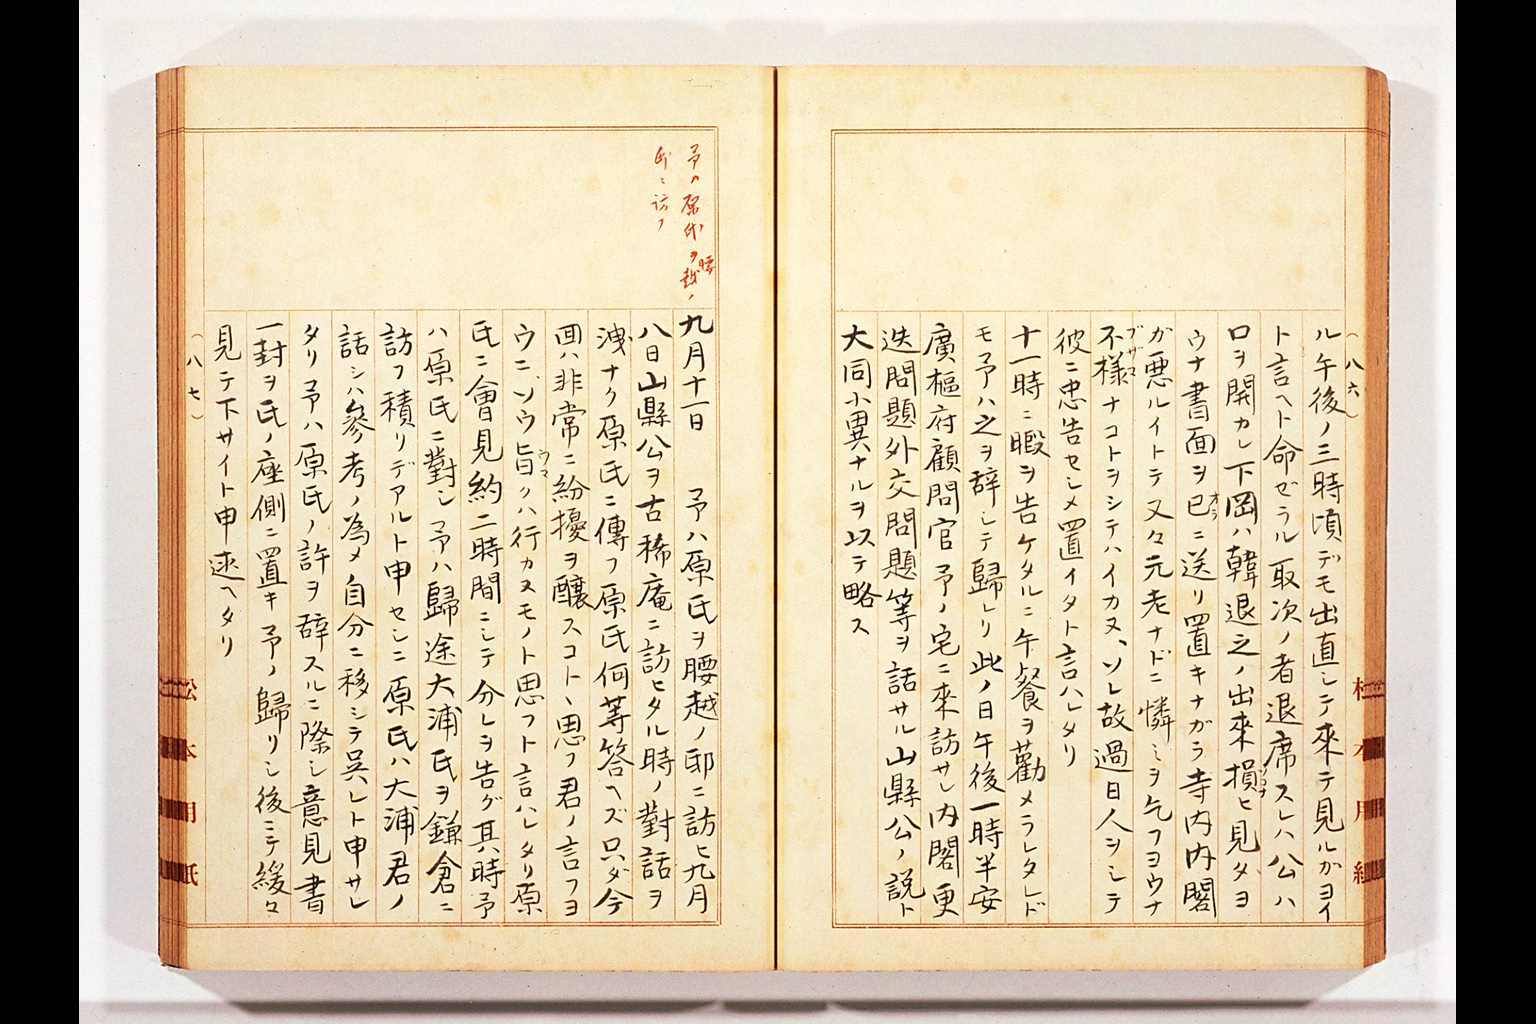 (八六)
ル午後ノ三時頃デモ出直シテ來テ見ルガヨイ
ト言ヘト命ゼラル取次ノ者退席スレハ公ハ
口ヲ開カレ下岡ハ韓退之ノ出來損ヒ見タヨ
ウナ書面ヲ己ニ送リ置キナガラ寺内内閣
カ悪ルイトテ又々元老ナドニ憐ミヲ乞フヨウナ
不様ナコトヲシテハイカヌ、ソレ故過日人ヲシテ
彼ニ忠告セシメ置イタト言ハレタリ
十一時ニ暇ヲ告ケタルニ午餐ヲ勸メラレタレド
モ予ハ之ヲ辞シテ歸レリ此ノ日午後一時半安
廣樞府顧問官予ノ宅ニ來訪サレ内閣更
迭問題外交問題等ヲ話サル山縣公ノ説ト
大同小異ナルヲ以テ略ス
予ハ原氏ヲ腰越ノ
邸ニ訪フ
九月十一日 予ハ原氏ヲ腰越ノ邸ニ訪ヒ九月
八日山縣公ヲ古稀庵ニ訪ヒタル時ノ對話ヲ
洩ナク原氏ニ傳フ原氏何等答ヘズ只ダ今
回ハ非常ニ紛擾ヲ醸スコトヽ思フ君ノ言フヨ
ウニ、ソウ旨クハ行カヌモノト思フト言ハレタリ原
氏ニ會見約二時間ニシテ分レヲ告グ其時予
ハ原氏ニ對シ予ハ歸途大浦氏ヲ鎌倉ニ
訪フ積リデアルト申セシニ原氏ハ大浦君ノ
話シハ參考ノ為メ自分ニ移シテ呉レト申サレ
タリ予ハ原氏ノ許ヲ辞スルニ際シ意見書
一封ヲ氏ノ座側ニ置キ予ノ歸リシ後ニテ緩々
見テ下サイト申述ヘタリ
(八七)
松本用紙